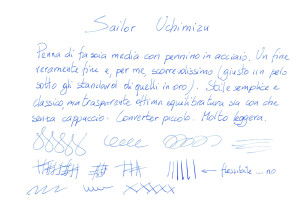 Sailor Uchimizu
Penna di fascia media con pennino in acciaio. Un fine
veramente fine e, per me, scorrevolissimo (giusto un pelo
sotto gli standard di quelli in oro). Stile semplice e
classico ma trasparente ottima equilibratura sia con che
senza cappuccio. Converter piccolo. Molto leggera.
← flessibile ... no